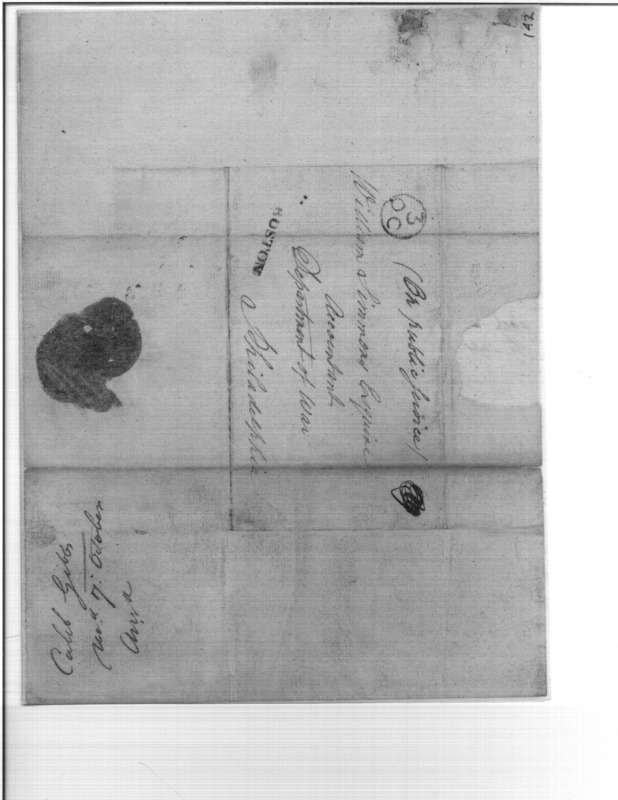 (On public service)
3
OC
William Simmons Esquire
Accountant
Department of War
Philadelphia
BOSTON
Caleb Gibbs
Recd. 7. October
Ansd
142